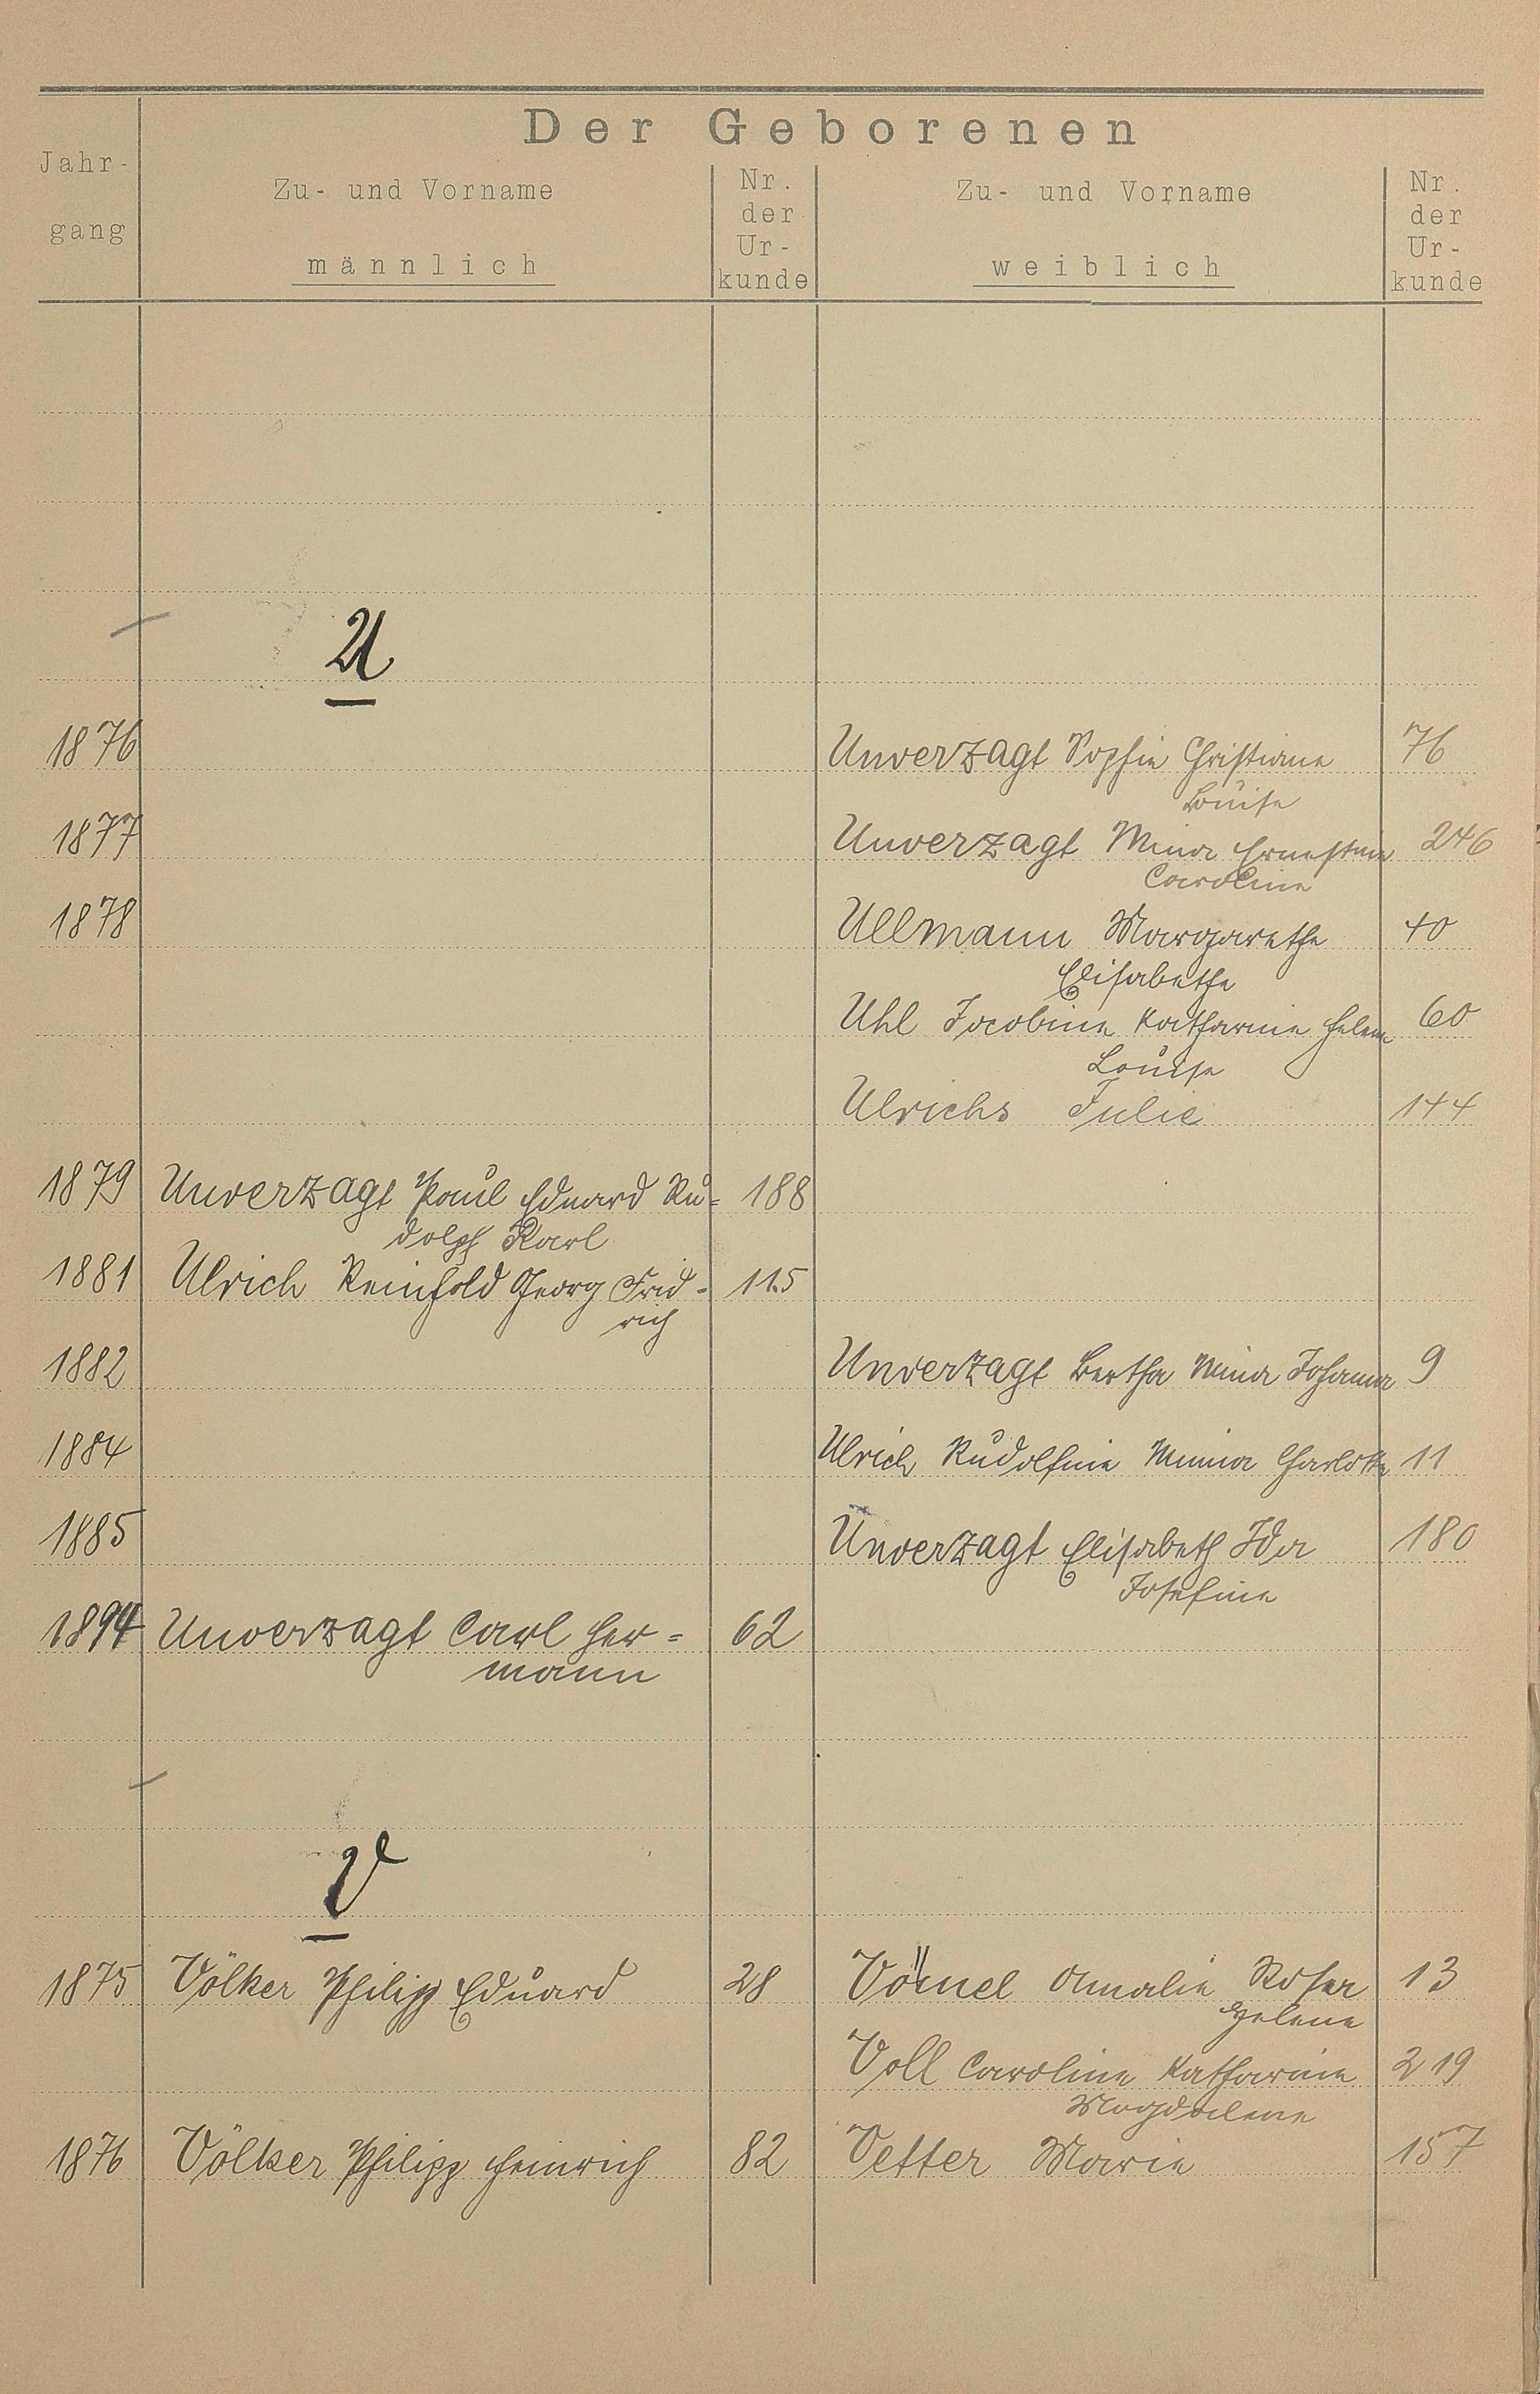 Der Geborenen
Jahr-
gang
Zu- und Vorname
männlich
Nr.
der
Ur-
kunde
Zu- und Vorname
weiblich
Nr.
der
Ur-
kunde
U
1876 Unverzagt Sophie Christiane 76
Louise
1877 Unverzagt Mina Ernestine 246
Caroline
1878 Ullmann Margarethe 40
Elisabethe
Uhl Jacobine Katharine Helene 60
Louise
Ulrichs Julie 144
1879 Unverzagt Paul Eduard Ru= 188
dolph Karl
1881 Ulrich Reinhold Georg Frid= 115
rich
1882 Unverzagt Bertha Mina Johanna 9
1884 Ulrich Rudolfine Minna Charlotte 11
1885 Unverzagt Elisabeth Ida 180
Josefine
1894 Unverzagt Carl Her= 62
mann
V
1875 Völker Philipp Eduard 28 Vömel Amalie Rosa 13
Helene
Voll Caroline Katharine 219
Magdalene
1876 Völker Philipp Heinrich 82 Vetter Marie 157